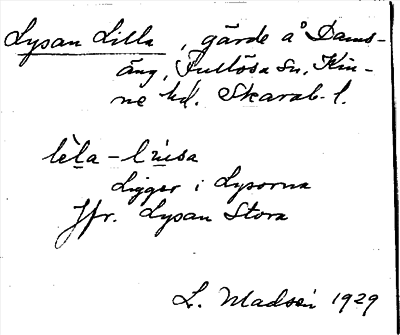 Lysan Lilla, gärde å Dams-
äng, Fullösa sn, Kin-
ne hd. Skarab. l.
lèla - lùsa
Ligger i Lysorna
Jfr. Lysan Stora
L. Madsén 1929